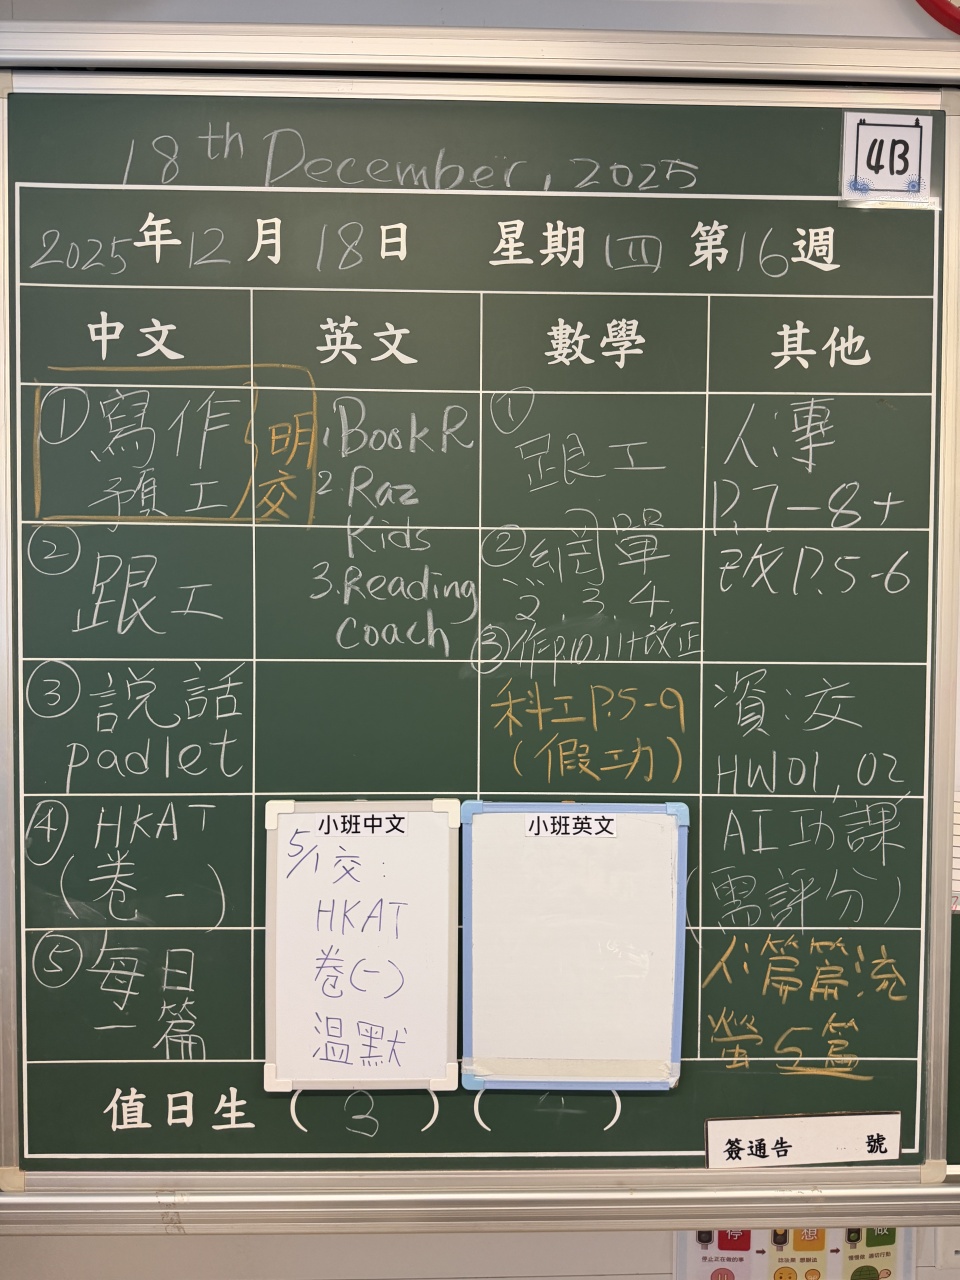 18th December, 2025
4B
2025年12月18日 星期四 第16週
中文
英文
數學
其他
①寫作(明
預工)交
②跟工
③說話
padlet
④HKAT
(卷一)
⑤每日
一篇
1.BookR
2.Raz
Kids
3.Reading
Coach
①
跟工
②網單
2,3,4,
③作p.10,11+改正
科工P.5-9
(假功)
人:專
P.7-8+
改P.5-6
資:交
HW01,02
AI功課
(需評分)
人:篇篇流
螢5篇
小班中文
5/1交:
HKAT
卷(一)
溫默
小班英文
值日生(3)(4)
簽通告 號
停
想
做